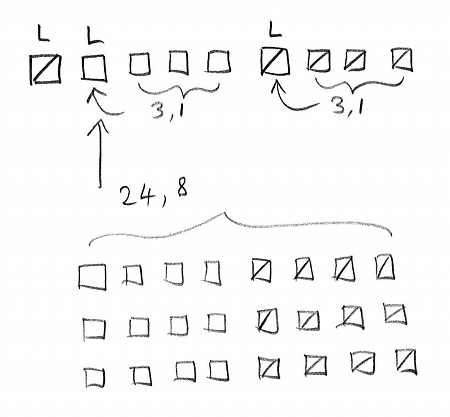 L L L
3,1 3,1
24,8